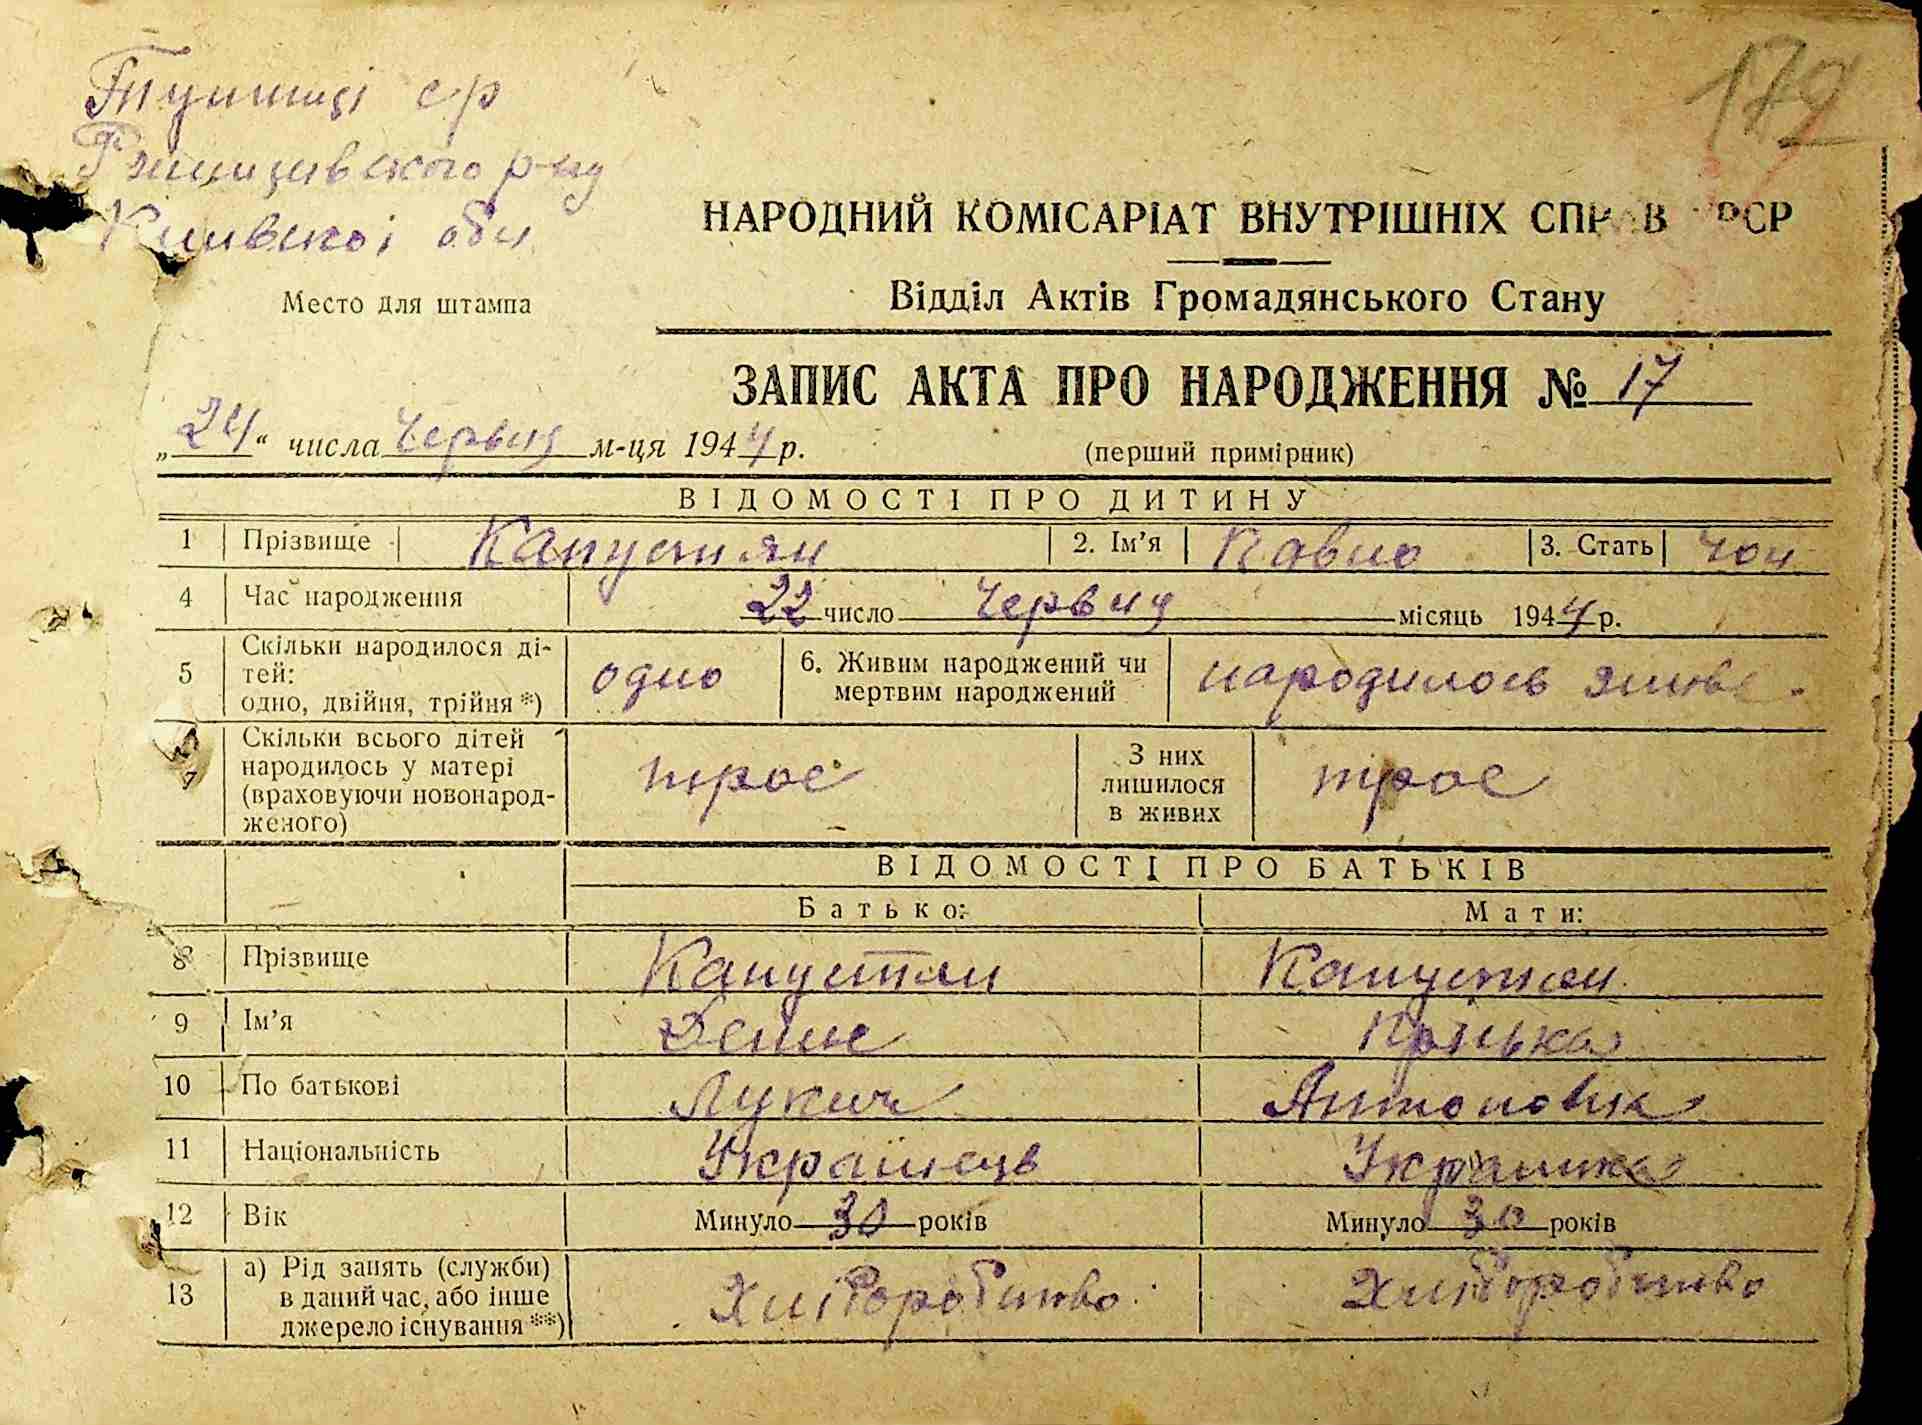 172
Тупиці с/р
Ржищівского р-ну
Київскоі обл
НАРОДНИЙ КОМІСАРІАТ ВНУТРІШНІХ СПРАВ РСР
Место для штампа
Відділ Актів Громадянського Стану
ЗАПИС АКТА ПРО НАРОДЖЕННЯ № 17
„24“ числа Червня м-ця 1944 р.
(перший примірник)
ВІДОМОСТІ ПРО ДИТИНУ
1 Прізвище Капустян 2. Ім’я Павло 3. Стать чол
4 Час народження 22 число Червня місяць 1944 р.
5 Скільки народилося ді-
тей:
одно, двійня, трійня *) одно 6. Живим народжений чи
мертвим народжений народилось живе.
7 Скільки всього дітей
народилось у матері
(враховуючи новонарод-
женого) троє З них
лишилося
в живих троє
ВІДОМОСТІ ПРО БАТЬКІВ
Батько: Мати:
8 Прізвище Капустян Капустян
9 Ім’я Денис
10 По батькові Лукич Антоновна
11 Національність Українець Українка
12 Вік Минуло 30 років Минуло 30 років
13 а) Рід занять (служби)
в даний час, або інше
джерело існування **) Хліборобство Хліборобство